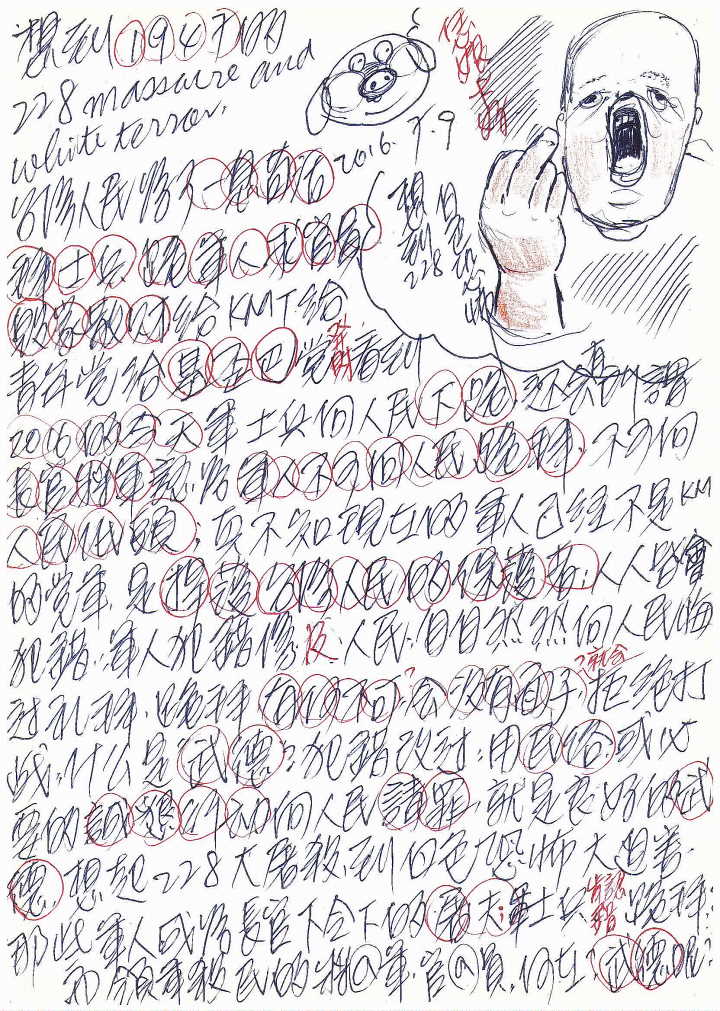 想到1947的
228 massacre and
white terror.
2016.7.9
想到228
台灣人民將不一息苟活
士兵 跪 軍人求官員
給KMT給
青年党給基金四党 看到
2016的今天軍士兵向人民下跪, 还
長官將軍認為軍人不可向人民跪拜, 不可向
人民低頭; 真不知現在的軍人已经不是KM
的党軍, 是擁護台灣人民的保護者; 人人皆會
犯錯, 軍人犯錯傷 人民; 自自然然向人民悔
过礼拜, 跪拜有何不可? 会没有面子? 拒绝打
战; 什么是武德? 犯錯改过; 用民俗, 或必
要的誠懇行动向人民請罪, 就是良好的武
德, 想起228大屠殺, 到白色恐怖大迫害,
那些軍人成為長官下令下的屠夫; 軍士兵 跪拜;
而領軍殺民的将軍, 官員, 何在? 武德呢?